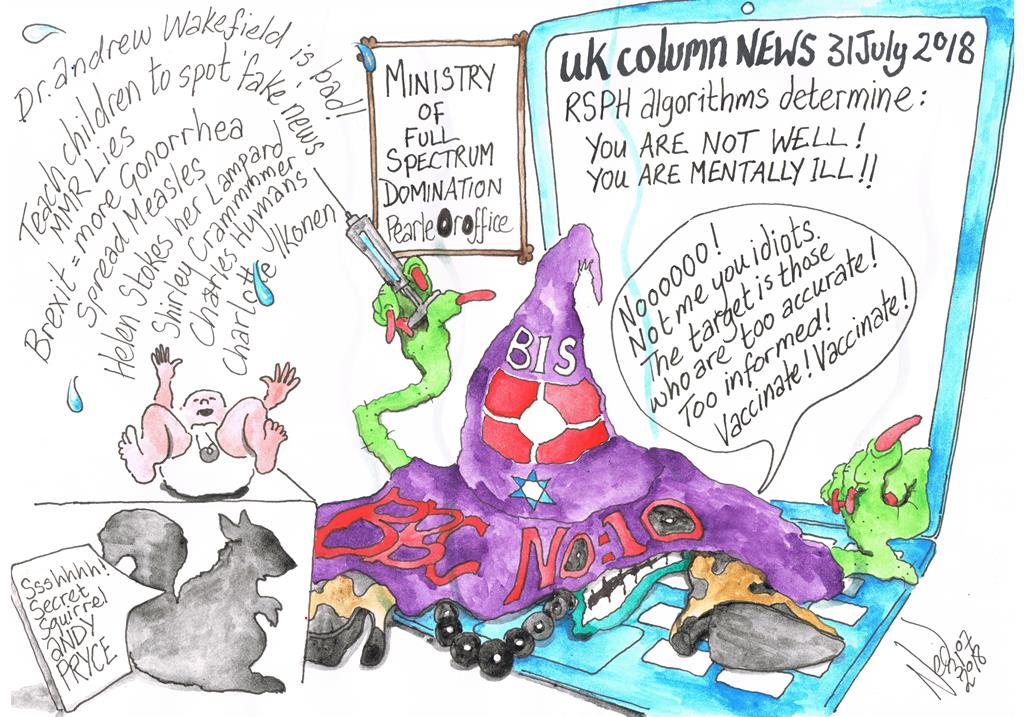 Dr. andrew Wakefield is bad!
Teach children to spot 'fake' news
MMR Lies
Brexit = more Gonorrhea
Spread Measles
Helen Stokes her Lampard
Shirley Crammmmer
Charles Hymans
Charlotte Ikonen
MINISTRY
OF
FULL
SPECTRUM
DOMINATION
Pearle Oroffice
uk column NEWS 31 July 2018
RSPH algorithms determine:
YOU ARE NOT WELL!
YOU ARE MENTALLY ILL!!
Noooooo!
Not me you idiots.
The target is those
who are too accurate!
Too informed!
Vaccinate! Vaccinate!
BIS
BBC
NO:10
Ssshhhh!
Secret
Squirrel
aNDY
PRYCE